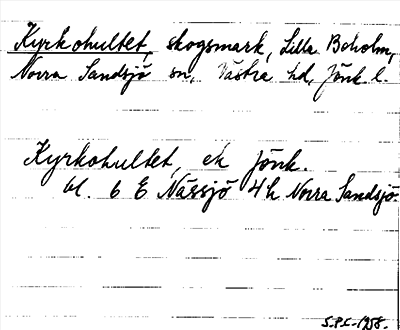 Kyrkohultet, skogsmark, Lilla Boholm,
Norra Sandsjö sn, Västra hd, Jönk l.
Kyrkohultet, ek Jönk.
bl. 6 E Nässjö 4 h Norra Sandsjö.
S.P.C. 1958.